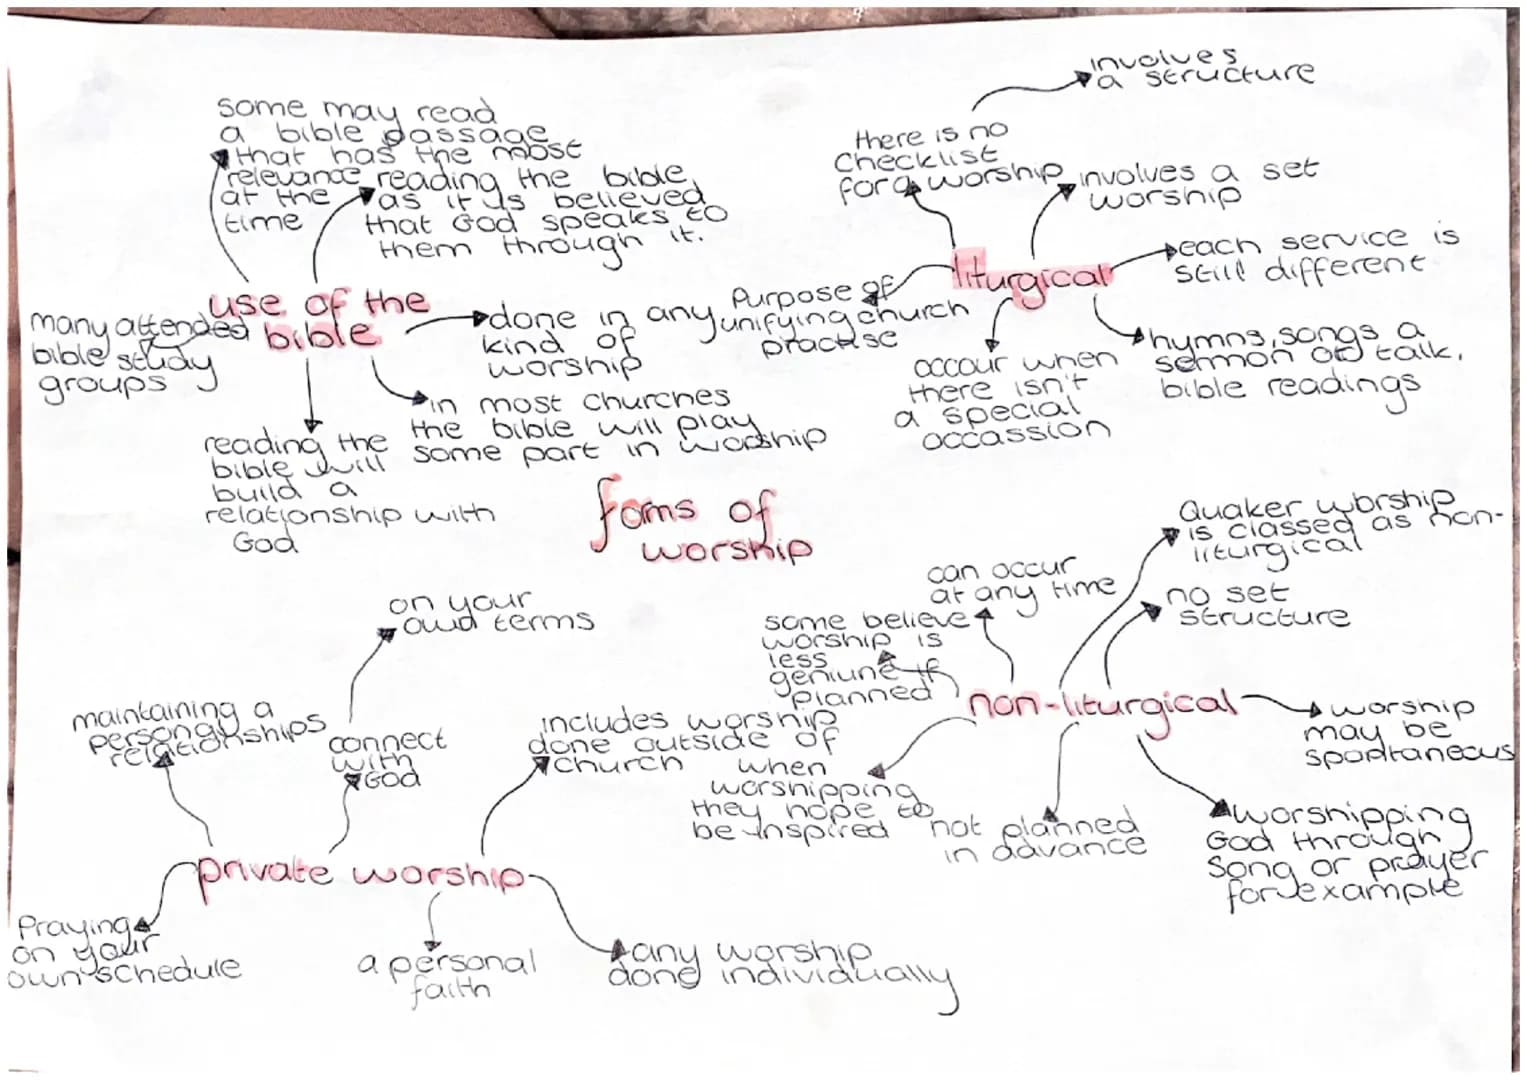 some may read
a bible passage
that has the most
relevance
at the
time
reading the bible
as it is believed
that God speaks to
them through it.
use of the
bible
many attended
bible study
groups
done in any
kind of
worship
in most churches
the bible will play
some part in worship
reading the
bible will
build a
relationship with
God
involves
a structure
there is no
checklist
for a worship
involves a set
worship
each service is
still different
liturgical
Purpose of
unifying church
practise
occour when
there isn't
a special
occassion
hymns, songs a
sermon or talk,
bible readings
foms of
worship
on your
own terms
maintaining a
personal
relationships
connect
with
God
includes worship
done outside of
church
private worship
Praying
on your
own schedule
a personal
faith
any worship
done individually
Quaker worship
is classed as non-
liturgical
can occur
at any time
no set
structure
some believe
worship is
less
geniune if
planned
non-liturgical
worship
may be
spontaneous
when
worshipping
they hope to
be inspired
not planned
in advance
worshipping
God through
song or prayer
for example